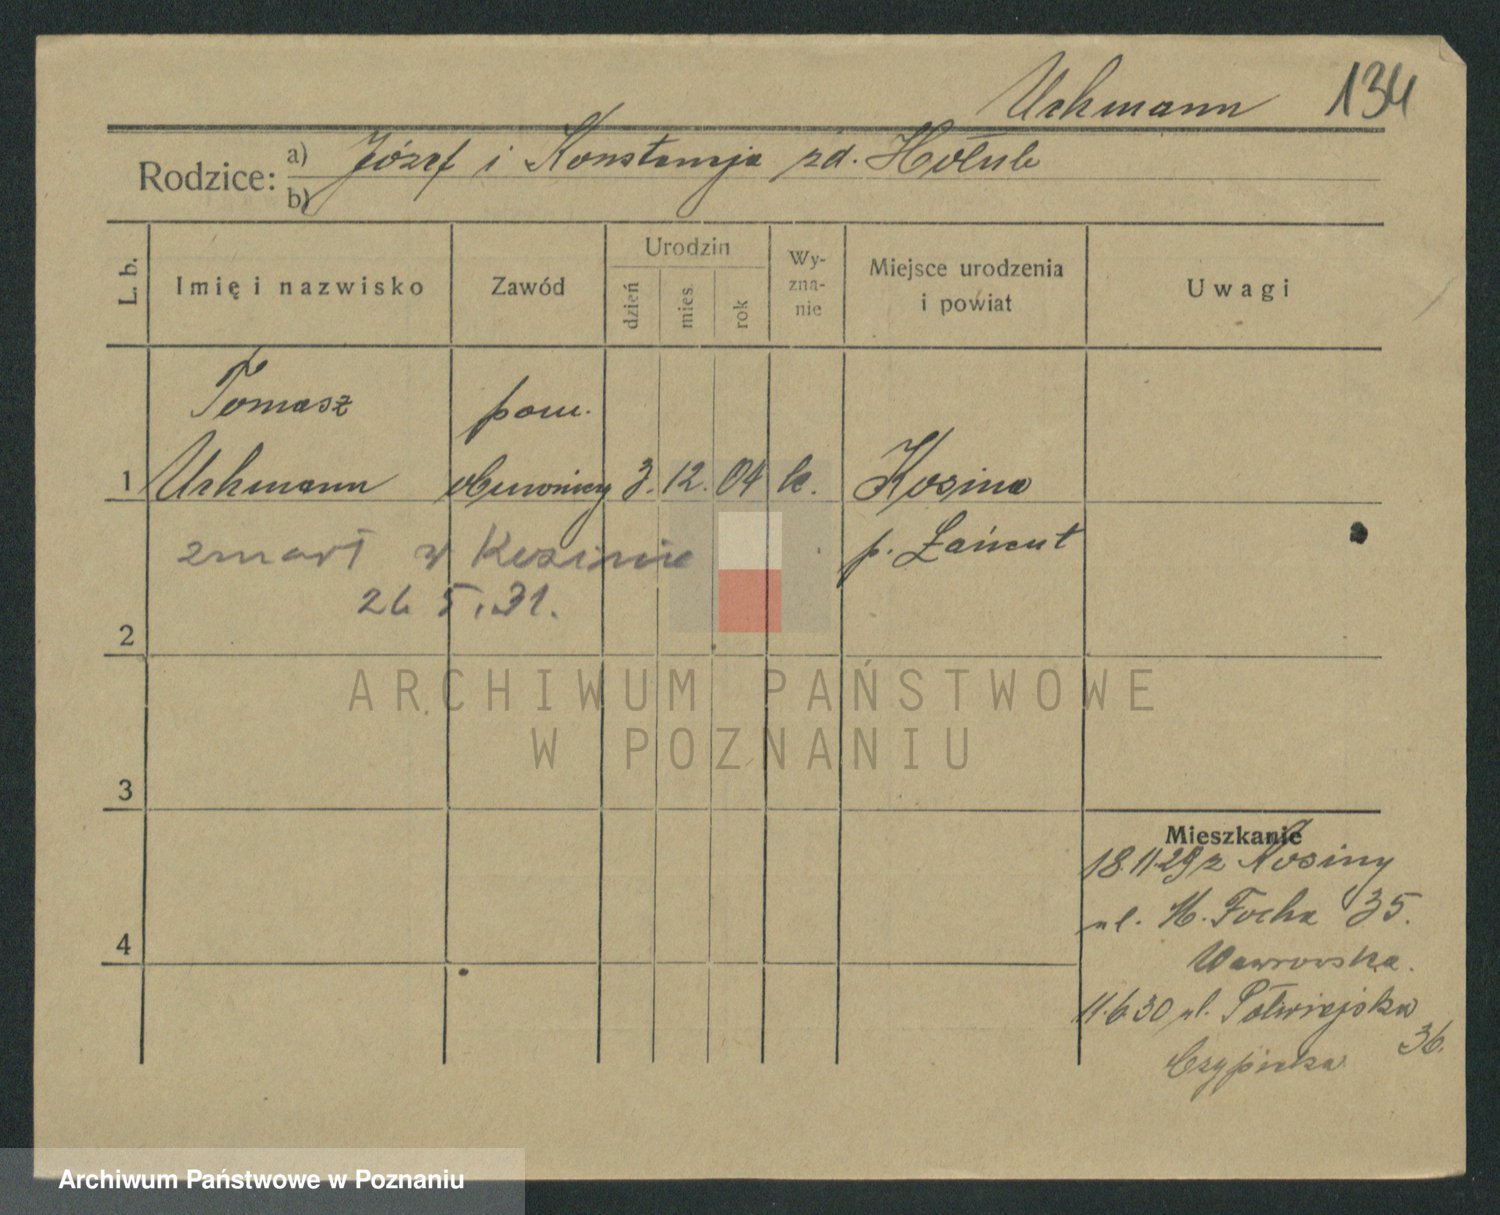 Urhmann 134
Rodzice: a) Józef i Konstancja zd. Hołub
b)
L. b. Imię i nazwisko Zawód Urodzin dzień mies. rok Wy-zna-nie Miejsce urodzenia i powiat Uwagi
Tomasz pom.
1 Urhmann 3. 12. 04 k. Kosina
zmarł w Kosinie p. Łańcut
26 5. 31.
2
ARCHIWUM PAŃSTWOWE
W POZNANIU
3
Mieszkanie
18.11.29 z Kosiny
ul. M. Focha 35.
4
Wawrowska.
11.6.30 ul. Półwiejska
36.
Czypicka
Archiwum Państwowe w Poznaniu